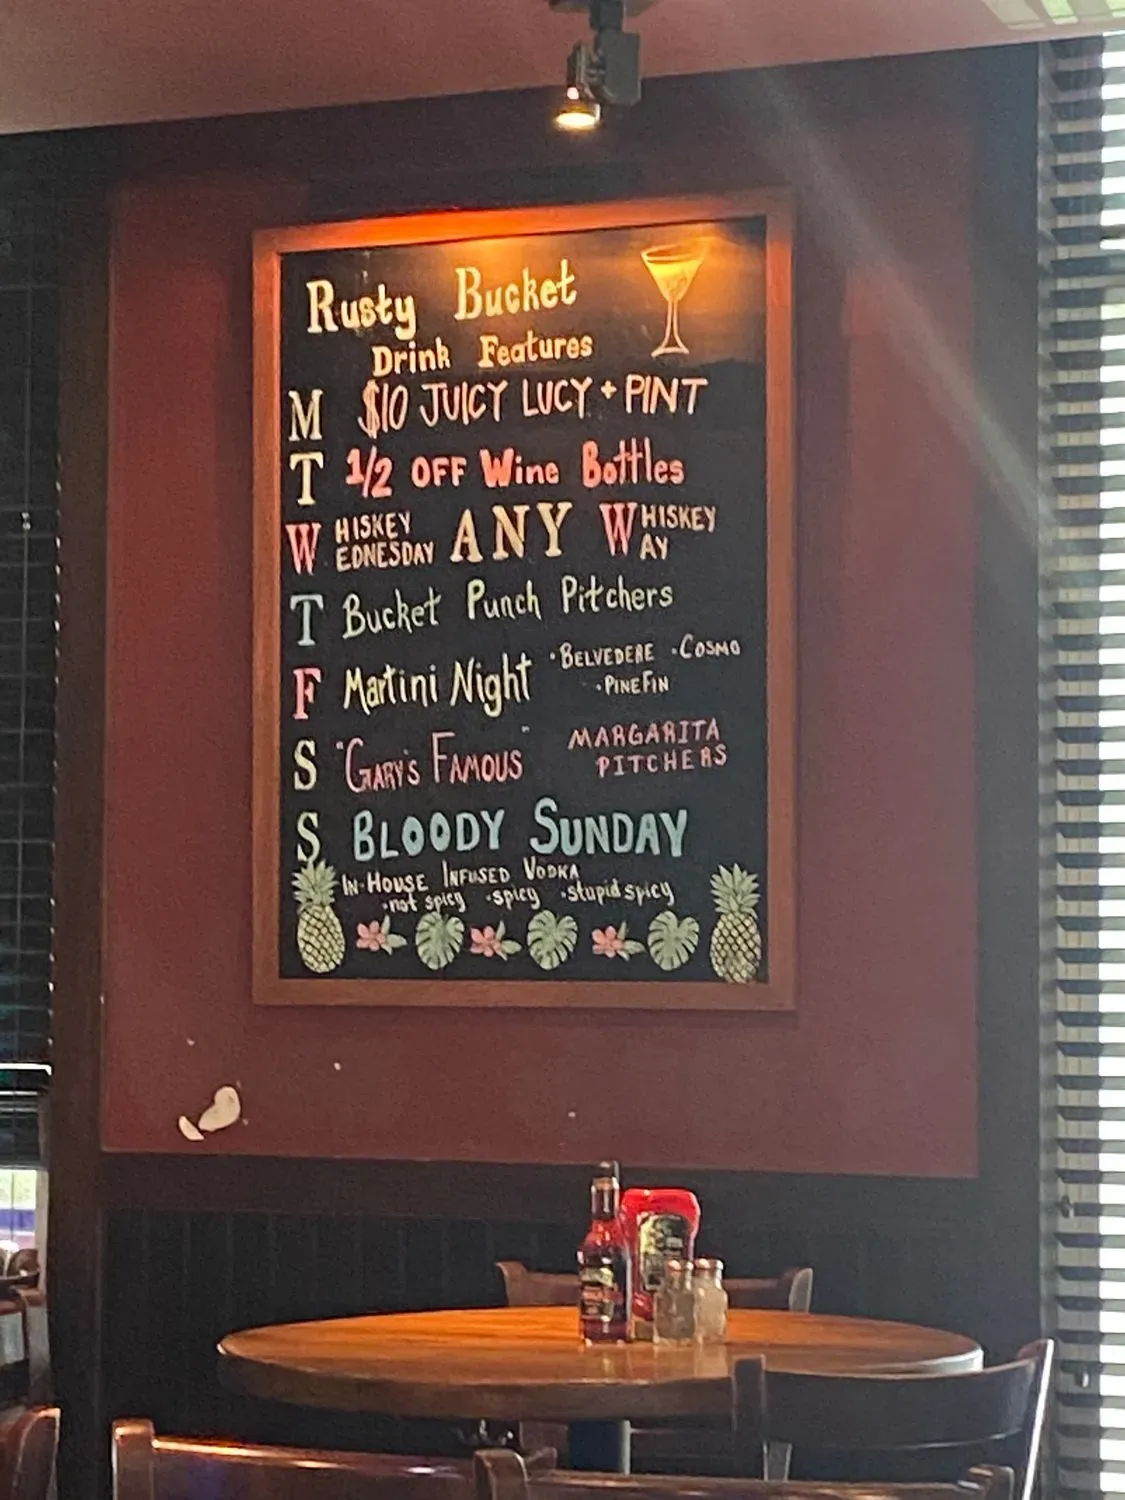 Rusty Bucket
Drink Features
M $10 JUICY LUCY + PINT
T 1/2 OFF Wine Bottles
WHISKEY WEDNESDAY ANY WHISKEY WAY
T Bucket Punch Pitchers
F Martini Night · BELVEDERE · COSMO
· PINEFIN
S "GARY'S FAMOUS" MARGARITA
PITCHERS
S BLOODY SUNDAY
IN-HOUSE INFUSED VODKA
· not spicy · spicy · stupid spicy